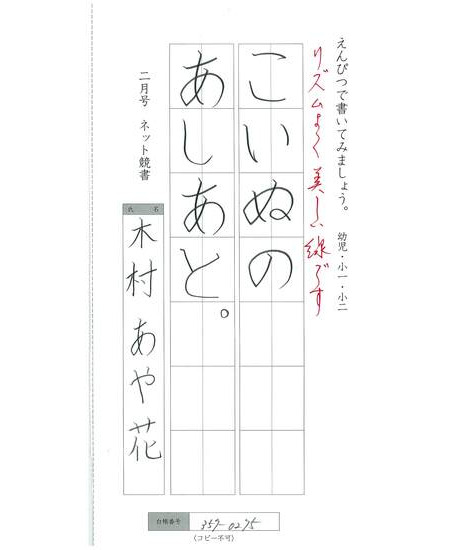 えんぴつで書いてみましょう。 幼児・小一・小二
リズムよく美しい線です
こいぬの
あしあと。
二月号 ネット競書
氏名
木村 あや花
台帳番号
357-0275
(コピー不可)